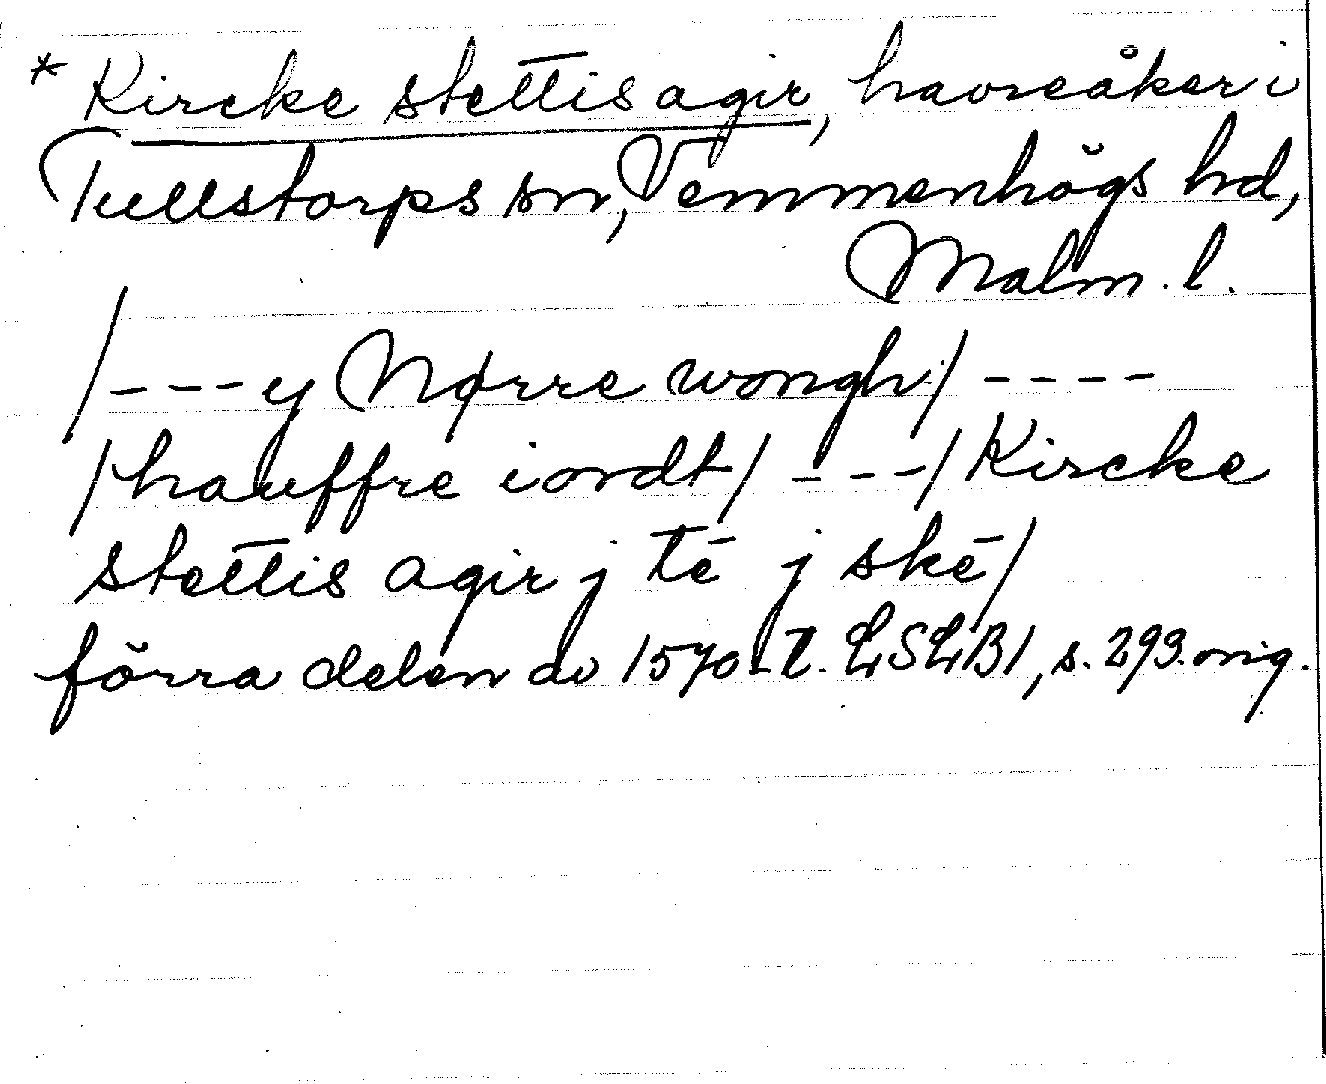 * Kircke stettis agir, havreåker i
Tullstorps sn, Vemmenhögs hd,
Malm. l.
/---y Nørre wongh/----
/hauffre iordt/---/Kircke
stettis agir j tē j skē/
förra delen av 1570-t. LSLB1, s. 293. orig.